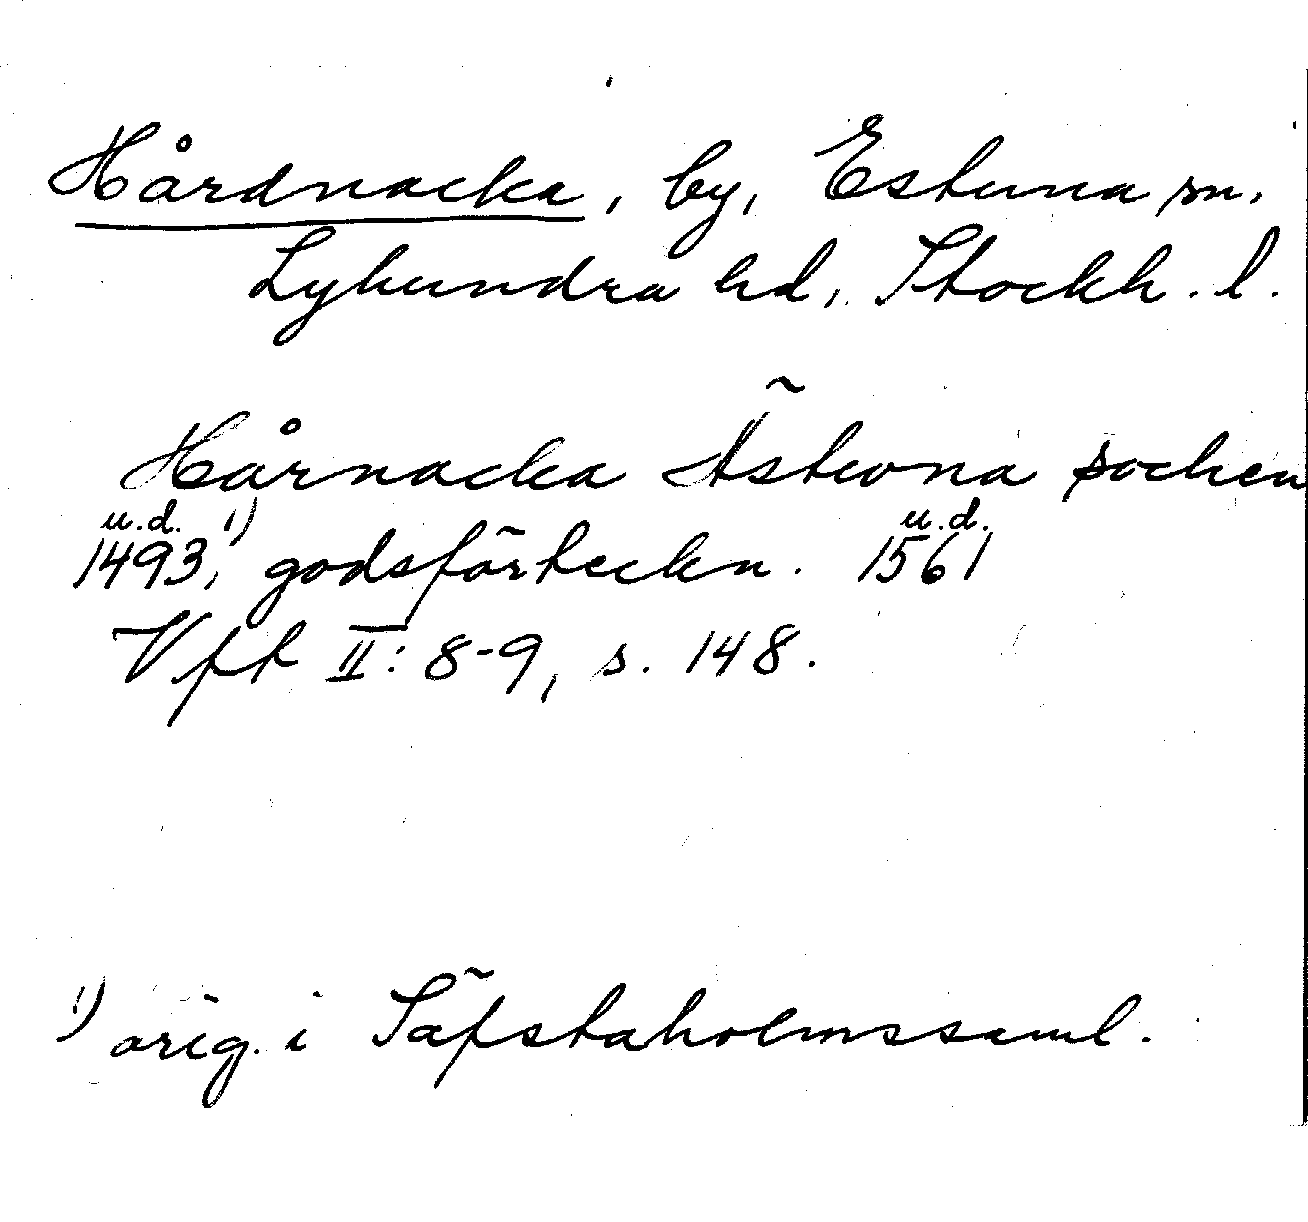 Hårdnacka, by, Estuna sn,
Lyhundra hd, Stockh. l.
Hårnacka Ästwna sochen
u.d. 1) u.d.
1493, godsförteckn. 1561
Vfk II: 8-9, s. 148.
1) orig. i Säfstaholmssaml.